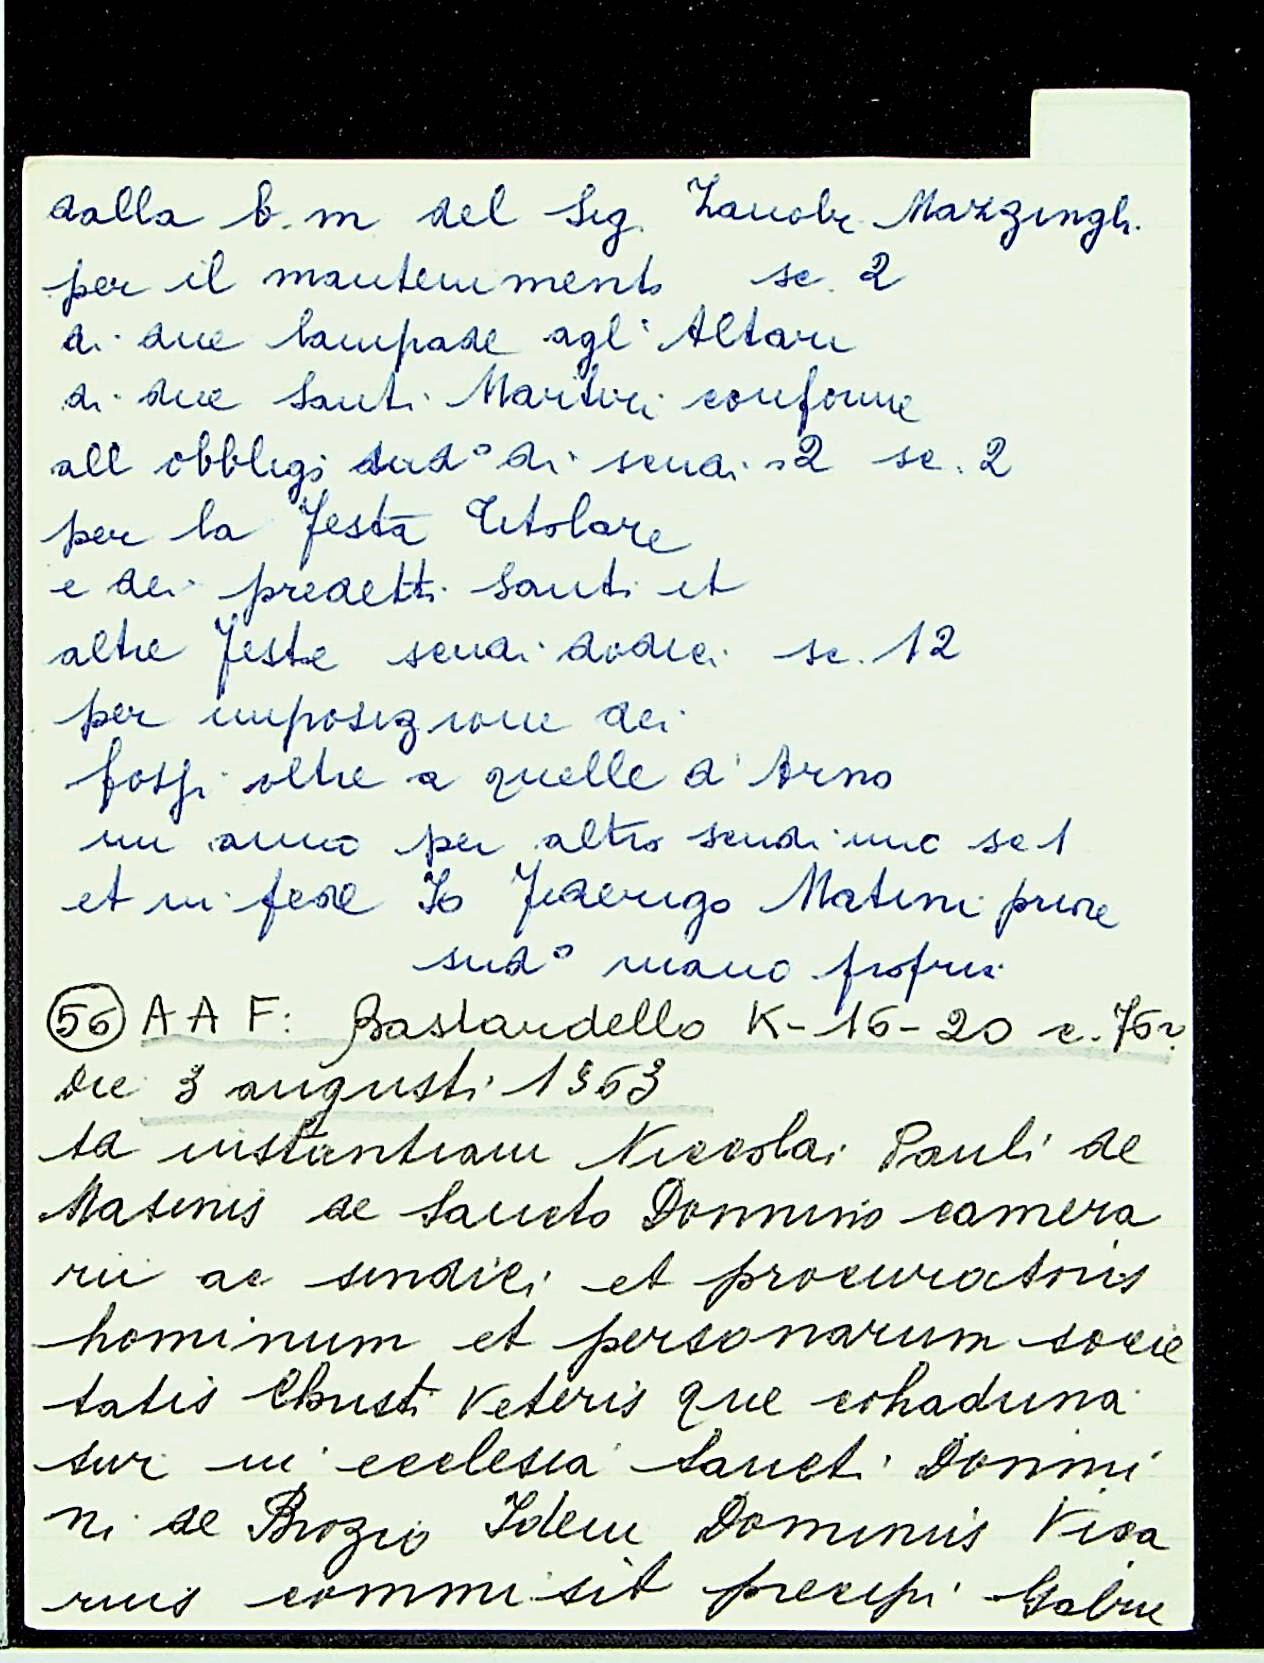 dalla b. m del Sig. Zanobi Mazzinghi
per il mantenimento sc. 2
di due lampade agli Altari
di due Santi Martiri conforme
all obbligo sudº di scudi 2 sc. 2
per la Festa Titolare
e dei predetti Santi et
altre Feste scudi dodici sc. 12
per imposizione dei
fossi oltre a quelle d'Arno
un anno per altro scudi uno sc 1
et in fede Io Federigo Matini priore
sudº mano propria
56 A A F: Bastardello K-16-20 c.
Die 3 augusti 1563
instantiam Niccolai Pauli de
Masinis de Sancto Donnino camera
rii ac sindici et procuratoris
hominum et personarum socie
tatis Christi Veteris que cohaduna
tur in ecclesia Sancti Donni
ni de Brozio Idem Dominus Vica
rius commisit precipi Gabrie